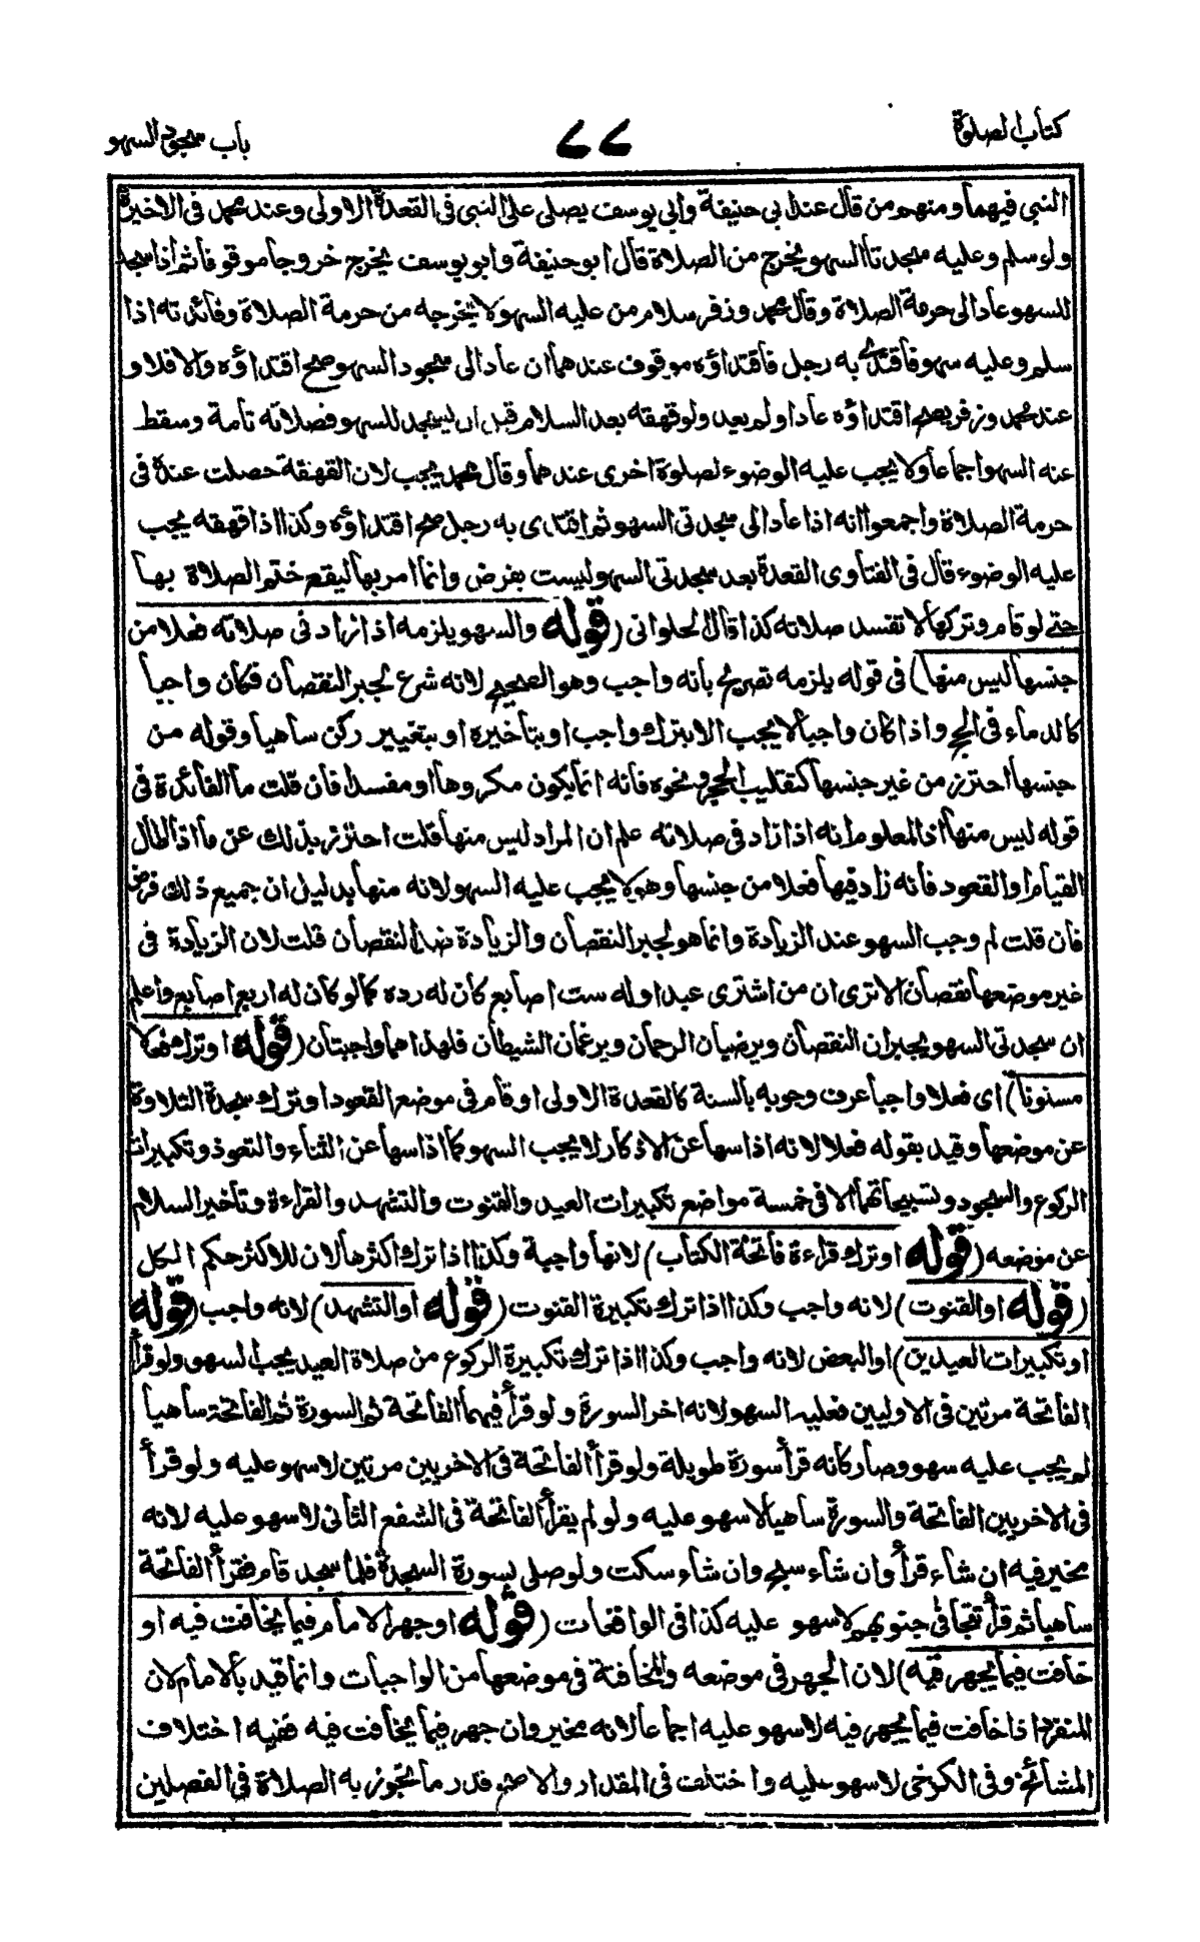 كتاب الصلوة
٧٧
باب سجود السهو
النبي فيهما ومنهم من قال عند ابي حنيفة وابي يوسف يصلى على النبي فى القعدة الاولى وعند محمد فى الاخيرة
ولو سلم وعليه سجدتا السهو يخرج من الصلاة قال ابو حنيفة وابو يوسف يخرج خروجا موقوفا ثم اذا سجد
للسهو عاد الى حرمة الصلاة وقال محمد وزفر سلام من عليه السهو لا يخرجه من حرمة الصلاة وفائدته اذا
سلم وعليه سهو فاقتدى به رجل فاقتداؤه موقوف عندهما ان عاد الى سجود السهو صح اقتداؤه والا فلا و
عند محمد وزفر يصح اقتداؤه عاد اولم يعد ولو قهقه بعد السلام قبل ان يسجد للسهو فصلاته تامة وسقط
عنه السهو اجماعا ولا يجب عليه الوضوء لصلوة اخرى عندهما وقال محمد يجب لان القهقة حصلت عندة فى
حرمة الصلاة واجمعوا انه اذا عاد الى سجدتى السهو ثم اقتدى به رجل صح اقتداؤه وكذا اذا قهقه يجب
عليه الوضوء قال فى الفتاوى القعدة بعد سجدتى السهو ليست بفرض وانما امر بها ليقع ختم الصلاة بها
حتى لو قام وتركها لا تفسد صلاته كذا قال الحلوانى (قوله والسهو يلزمه اذا زاد فى صلاته فعلا من
جنسها ليس منها) فى قوله يلزمه تصريح بانه واجب وهو الصحيح لانه شرع لجبر النقصان فكان واجبا
كالدماء فى الحج واذا كان واجبا لا يجب الا بترك واجب او بتأخيره او بتغيير ركن ساهيا وقوله من
جنسها احترز من غير جنسها كتقليب الحجر ونحوه فانه انما يكون مكروها او مفسدا فان قلت ما الفائدة فى
قوله ليس منها اذ المعلوم انه اذا زاد فى صلاته علم ان المراد ليس منها قلت احترز بذلك عن ما اذا اطال
القيام او القعود فانه زاد فيها فعلا من جنسها وهو لا يجب عليه السهو لانه منها بدليل ان جميع ذلك فرض
فان قلت لم وجب السهو عند الزيادة وانما هو لجبر النقصان والزيادة ضد النقصان قلت لان الزيادة فى
غير موضعها نقصان الا ترى ان من اشترى عبدا وله ست اصابع كان له رده كما لو كان له اربع اصابع واعلم
ان سجدتى السهو يجبران النقصان ويرضيان الرحمان ويرغمان الشيطان فلهذا هما واجبتان (قوله او ترك فعلا
مسنونا) اى فعلا واجبا عرف وجوبه بالسنة كالقعدة الاولى او قام فى موضع القعود او ترك سجدة التلاوة
عن موضعها وقيد بقوله فعلا لانه اذا سها عن الاذكار لا يجب السهو كما اذا سها عن الثناء والتعوذ وتكبيرات
الركوع والسجود وتسبيحاتهما الا فى خمسة مواضع تكبيرات العيد والقنوت والتشهد والقراءة وتأخير السلام
عن موضعه (قوله او ترك قراءة فاتحة الكتاب) لانها واجبة وكذا اذا ترك اكثرها لان للاكثر حكم الكل
(قوله او القنوت) لانه واجب وكذا اذا ترك تكبيرة القنوت (قوله او التشهد) لانه واجب (قوله
او تكبيرات العيدين) او البعض لانه واجب وكذا اذا ترك تكبيرة الركوع من صلاة العيد يجب السهو ولو قرأ
الفاتحة مرتين فى الاوليين فعليه السهو لانه اخر السورة ولو قرأ فيهما الفاتحة ثم السورة ثم الفاتحة ساهيا
لم يجب عليه سهو وصار كانه قرأ سورة طويلة ولو قرأ الفاتحة فى الاخريين مرتين لا سهو عليه ولو قرأ
فى الاخريين الفاتحة والسورة ساهيا لا سهو عليه ولو لم يقرأ الفاتحة فى الشفع الثانى لا سهو عليه لانه
مخير فيه ان شاء قرأ وان شاء سبح وان شاء سكت ولو صلى بسورة السجدة فلما سجد قام فقرأ الفاتحة
ساهيا ثم قرأ تتجافى جنوبهم لا سهو عليه كذا فى الواقعات (قوله او جهر الامام فيما يخافت فيه او
خافت فيما يجهر فيه) لان الجهر فى موضعه والمخافتة فى موضعها من الواجبات وانما قيد بالامام لان
المنفرد اذا خافت فيما يجهر فيه لا سهو عليه اجماعا لانه مخير وان جهر فيما يخافت فيه ففيه اختلاف
المشائخ وفى الكرخى لا سهو عليه واختلف فى المقدار والاصح قدر ما تجوز به الصلاة فى الفصلين